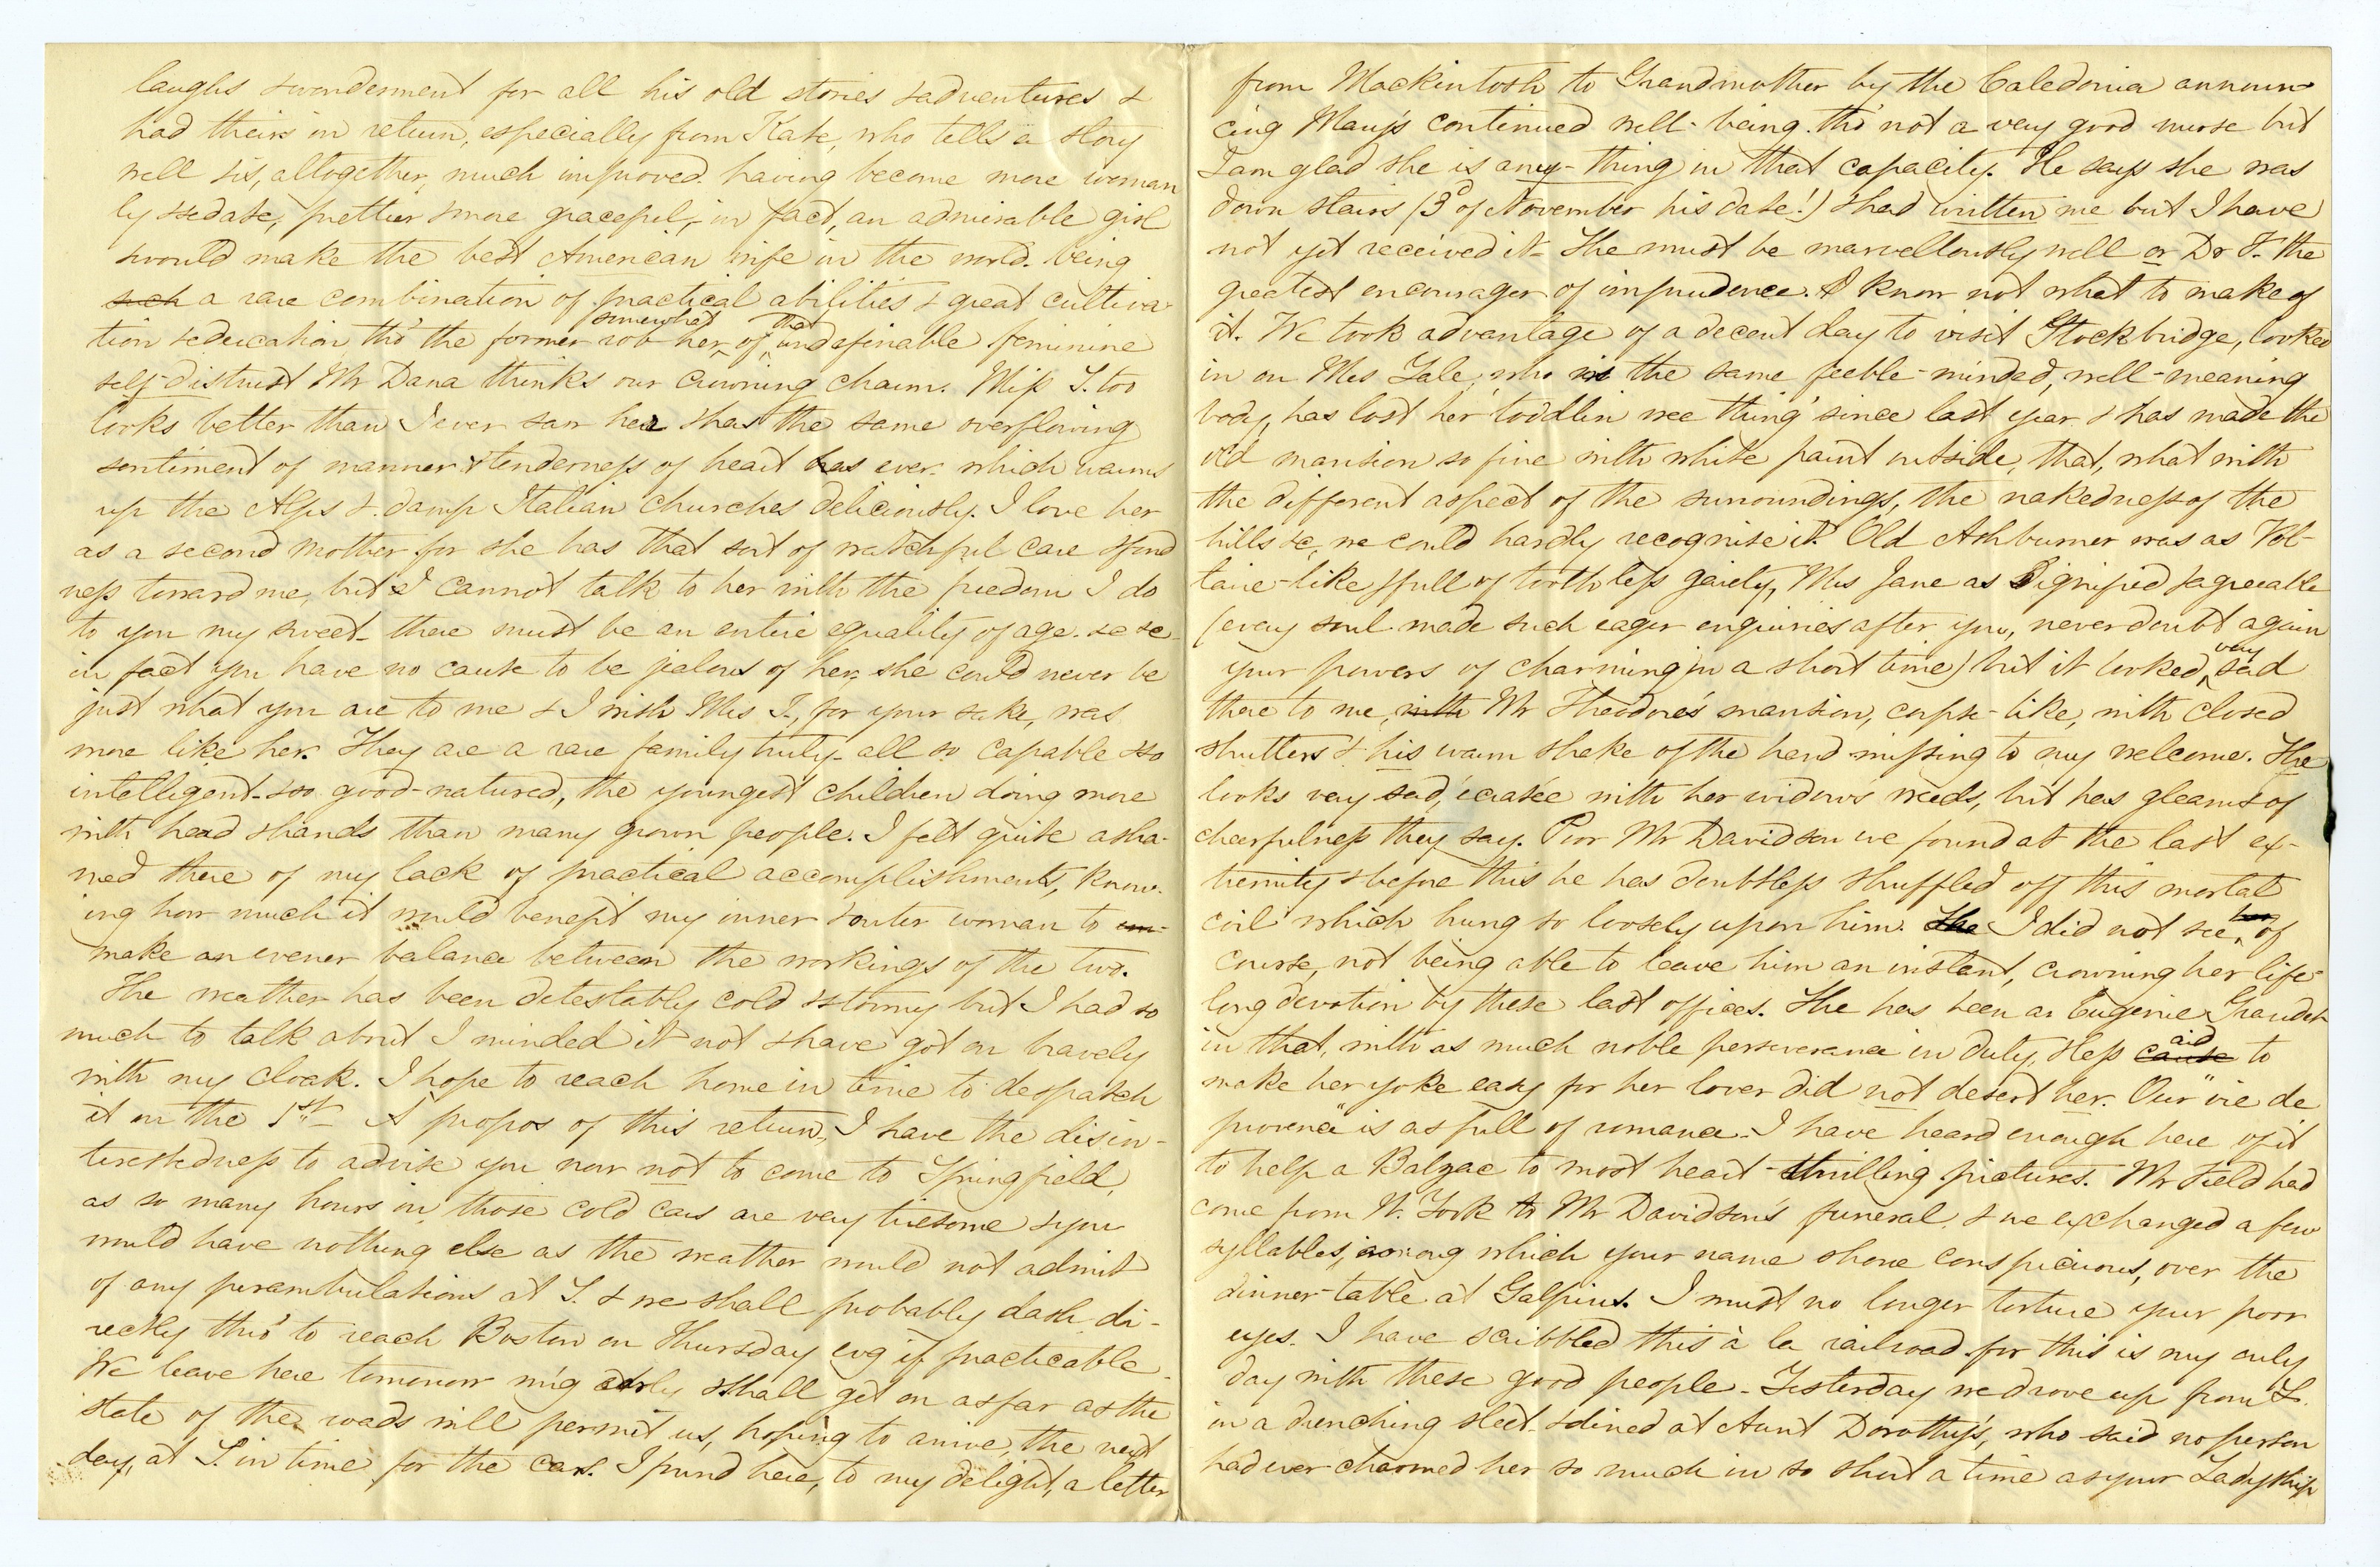 laughs & wonderment for all his old stories & adventures &
had theirs in return, especially from Kate, who tells a story
well & is, altogether, much improved. having become more woman
ly & sedate, prettier & more graceful, in fact, an admirable girl
& would make the best American wife in the world. being
such a rare combination of practical abilities & great cultiva
tion & education tho' the former rob her somewhat of that undefinable feminine
self-distrust Mr Dana thinks our crowning charm. Miss S. too
looks better than I ever saw her & has the same overflowing
sentiment of manner & tenderness of heart as ever which warms
up the Alps & damp Italian churches deliciously. I love her
as a second mother for she has that sort of watchful care & fond
ness toward me, but I cannot talk to her with the freedom I do
to you my sweet - there must be an entire equality of age. &c &c -
in fact you have no cause to be jealous of her, she could never be
just what you are to me & I wish Mrs I., for your sake, was
more like her. They are a rare family truly - all so capable & so
intelligent - & so good-natured, the youngest children doing more
with head & hands than many grown people. I felt quite asha-
med there of my lack of practical accomplishments, know-
ing how much it would benefit my inner & outer woman to
make an evener balance between the workings of the two.
The weather has been detestably cold & stormy but I had so
much to talk about I minded it not & have got on bravely
with my cloak. I hope to reach home in time to despatch
it on the 1st - A propos of this return, I have the disin-
terestedness to advise you now not to come to Springfield,
as so many hours in those cold cars are very tiresome & you
would have nothing else as the weather would not admit
of any perambulations at S. & we shall probably dash di-
rectly thro' to reach Boston on Thursday evg if practicable.
We leave here tomorrow m'g early & shall get on as far as the
state of the roads will permit us, hoping to arrive, the next
day, at S. in time for the cars. I found here, to my delight, a letter
from Mackintosh to Grandmother by the Caledonia announ-
cing Mary's continued well-being. tho' not a very good nurse but
I am glad she is any-thing in that capacity. He says she was
down stairs (3d of November his date!) & had written me but I have
not yet received it - She must be marvellously well or Dr F. the
greatest encourager of imprudence. I know not what to make of
it. We took advantage of a decent day to visit Stockbridge, looked
in on Mrs Yale, who is the same feeble-minded, well-meaning
body, has lost her 'toddlin wee thing' since last year & has made the
old mansion so fine with white paint outside, that, what with
the different aspect of the surroundings, the nakedness of the
hills &c, we could hardly recognise it. Old Ashburner was as Vol-
taire-like & full of toothless gaiety, Mrs Jane as dignified & agreeable
(every soul made such eager enquiries after you, never doubt again
your powers of charming in a short time) but it looked very sad
there to me, with Mr Theodore's mansion, corpse-like, with closed
shutters & his warm shake of the hand missing to my welcome. She
looks very sad, écrasée with her widow's weeds, but has gleams of
cheerfulness they say. Poor Mr Davidson we found at the last ex-
tremity & before this he has doubtless shuffled off this mortal
coil which hung so loosely upon him. She I did not see her of
course, not being able to leave him an instant, crowning her life-
long devotion by these last offices. She has been an Eugenie Grandet
in that, with as much noble perseverance in duty, & less cause aid to
make her yoke easy for her lover did not desert her. Our "vie de
province" is as full of romance. I have heard enough here of it
to help a Balzac to most heart-thrilling pictures. Mr Field had
come from N. York to Mr Davidson's funeral, & we exchanged a few
syllables, among which your name shone conspicuous, over the
dinner-table at Galpins. I must no longer torture your poor
eyes. I have scribbled this à la railroad for this is my only
day with these good people - Yesterday we drove up from L.
in a drenching sleet & dined at Aunt Dorothy's, who said no person
had ever charmed her so much in so short a time as your Ladyship